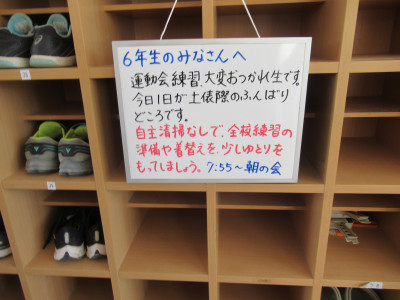 6年生のみなさんへ
運動会練習、大変おつかれ生です。
今日1日が土俵際のふんばり
どころです。
自主清掃なしで、全校練習の
準備や着替えを、少しゆとりを
もってしましょう。7:55～朝の会